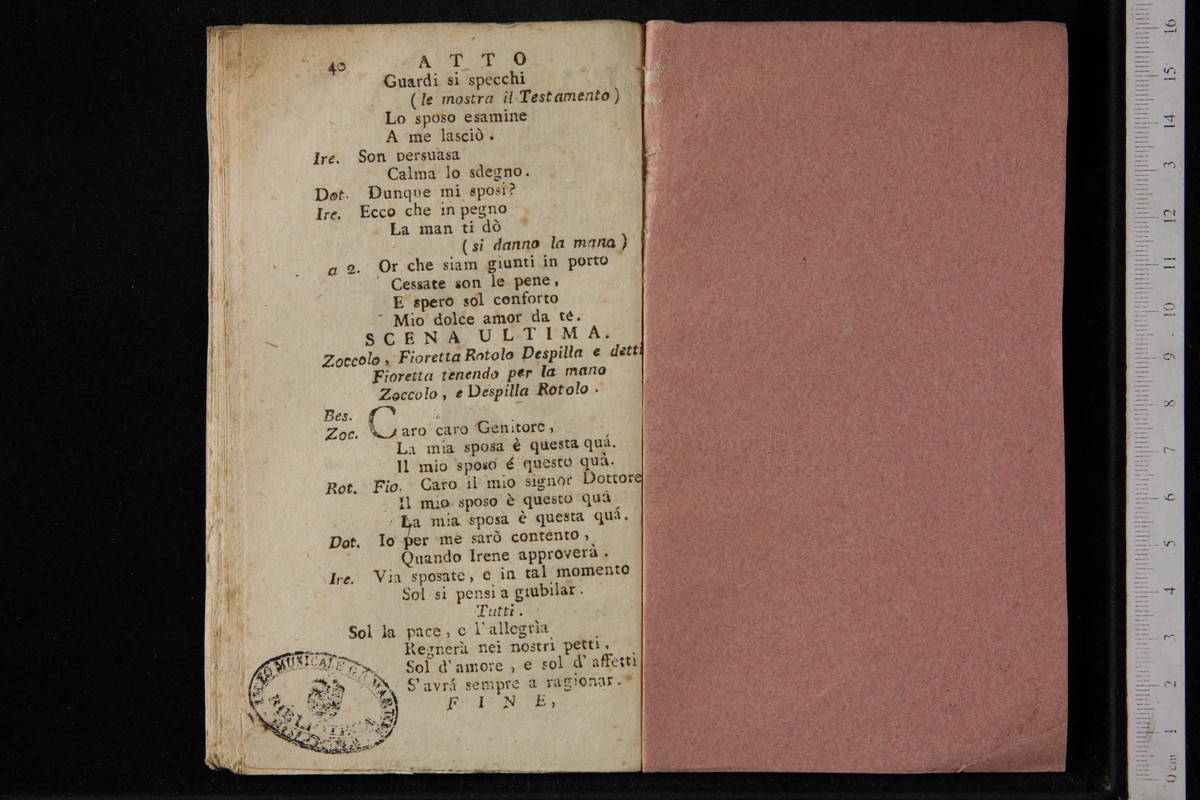 40 ATTO
Guardi si specchi
( le mostra il Testamento )
Lo sposo esamine
A me lasciò .
Ire. Son persuasa
Calma lo sdegno.
Dot. Dunque mi sposi?
Ire. Ecco che in pegno
La man ti dò
( si danno la mana )
a 2. Or che siam giunti in porto
Cessate son le pene ,
E spero sol conforto
Mio dolce amor da te.
SCENA ULTIMA.
Zoccolo , Fioretta Rotolo Despilla e detti
Fioretta tenendo per la mano
Zoccolo , e Despilla Rotolo .
Bes.
Zoc. Caro caro Genitore ,
La mia sposa è questa quá.
Il mio sposo é questo quà.
Rot. Fio. Caro il mio signor Dottore
Il mio sposo è questo quà
La mia sposa è questa quá.
Dot. Io per me sarò contento ,
Quando Irene approverà .
Ire. Via sposate , e in tal momento
Sol si pensi a giubilar .
Tutti .
Sol la pace , e l'allegrìa
Regnerà nei nostri petti ,
Sol d'amore , e sol d'affetti
S'avrá sempre a ragionar .
FINE,
LICEO MUSICALE G. B. MARTINI
BIBLIOTECA
BOLOGNA
0 cm 1 2 3 4 5 6 7 8 9 10 11 12 13 14 15 16